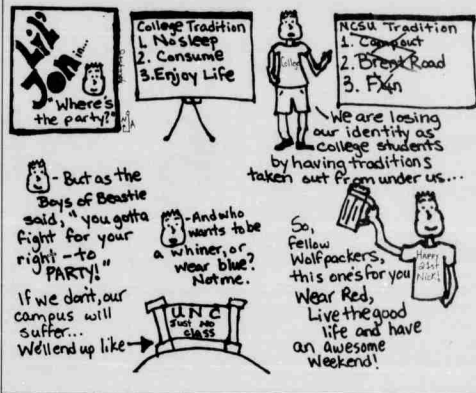 Lil'
Jon in...
"Where's
the party?"
College Tradition
1. No sleep
2. Consume
3. Enjoy Life
NCSU Tradition
1. Campout
2. Brent Road
3. Fun
College
We are losing
our identity as
college students
by having traditions
taken out from under us...
- But as the
Boys of Beastie
said, "you gotta
fight for your
right - to
PARTY!"
If we don't, our
campus will
suffer...
We'll end up like
- And who
wants to be
a whiner, or
wear blue?
Not me.
UNC
Just No
Class
So,
fellow
Wolfpackers,
this one's for you
Wear Red,
Live the good
life and have
an awesome
Weekend!
HAPPY
21st
Nick!